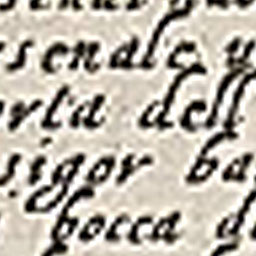 senale u
orta dell
sigor ba
bocca d